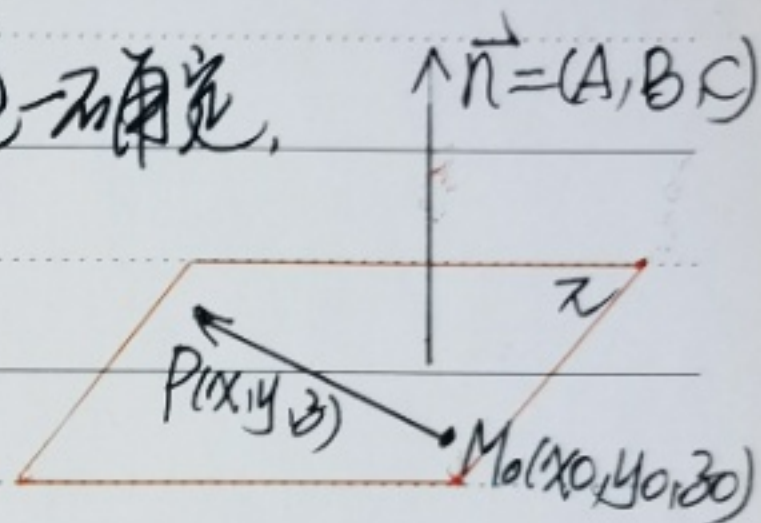 一确定,
n⃗=(A,B,C)
π
P(x,y,z)
M₀(x₀,y₀,z₀)